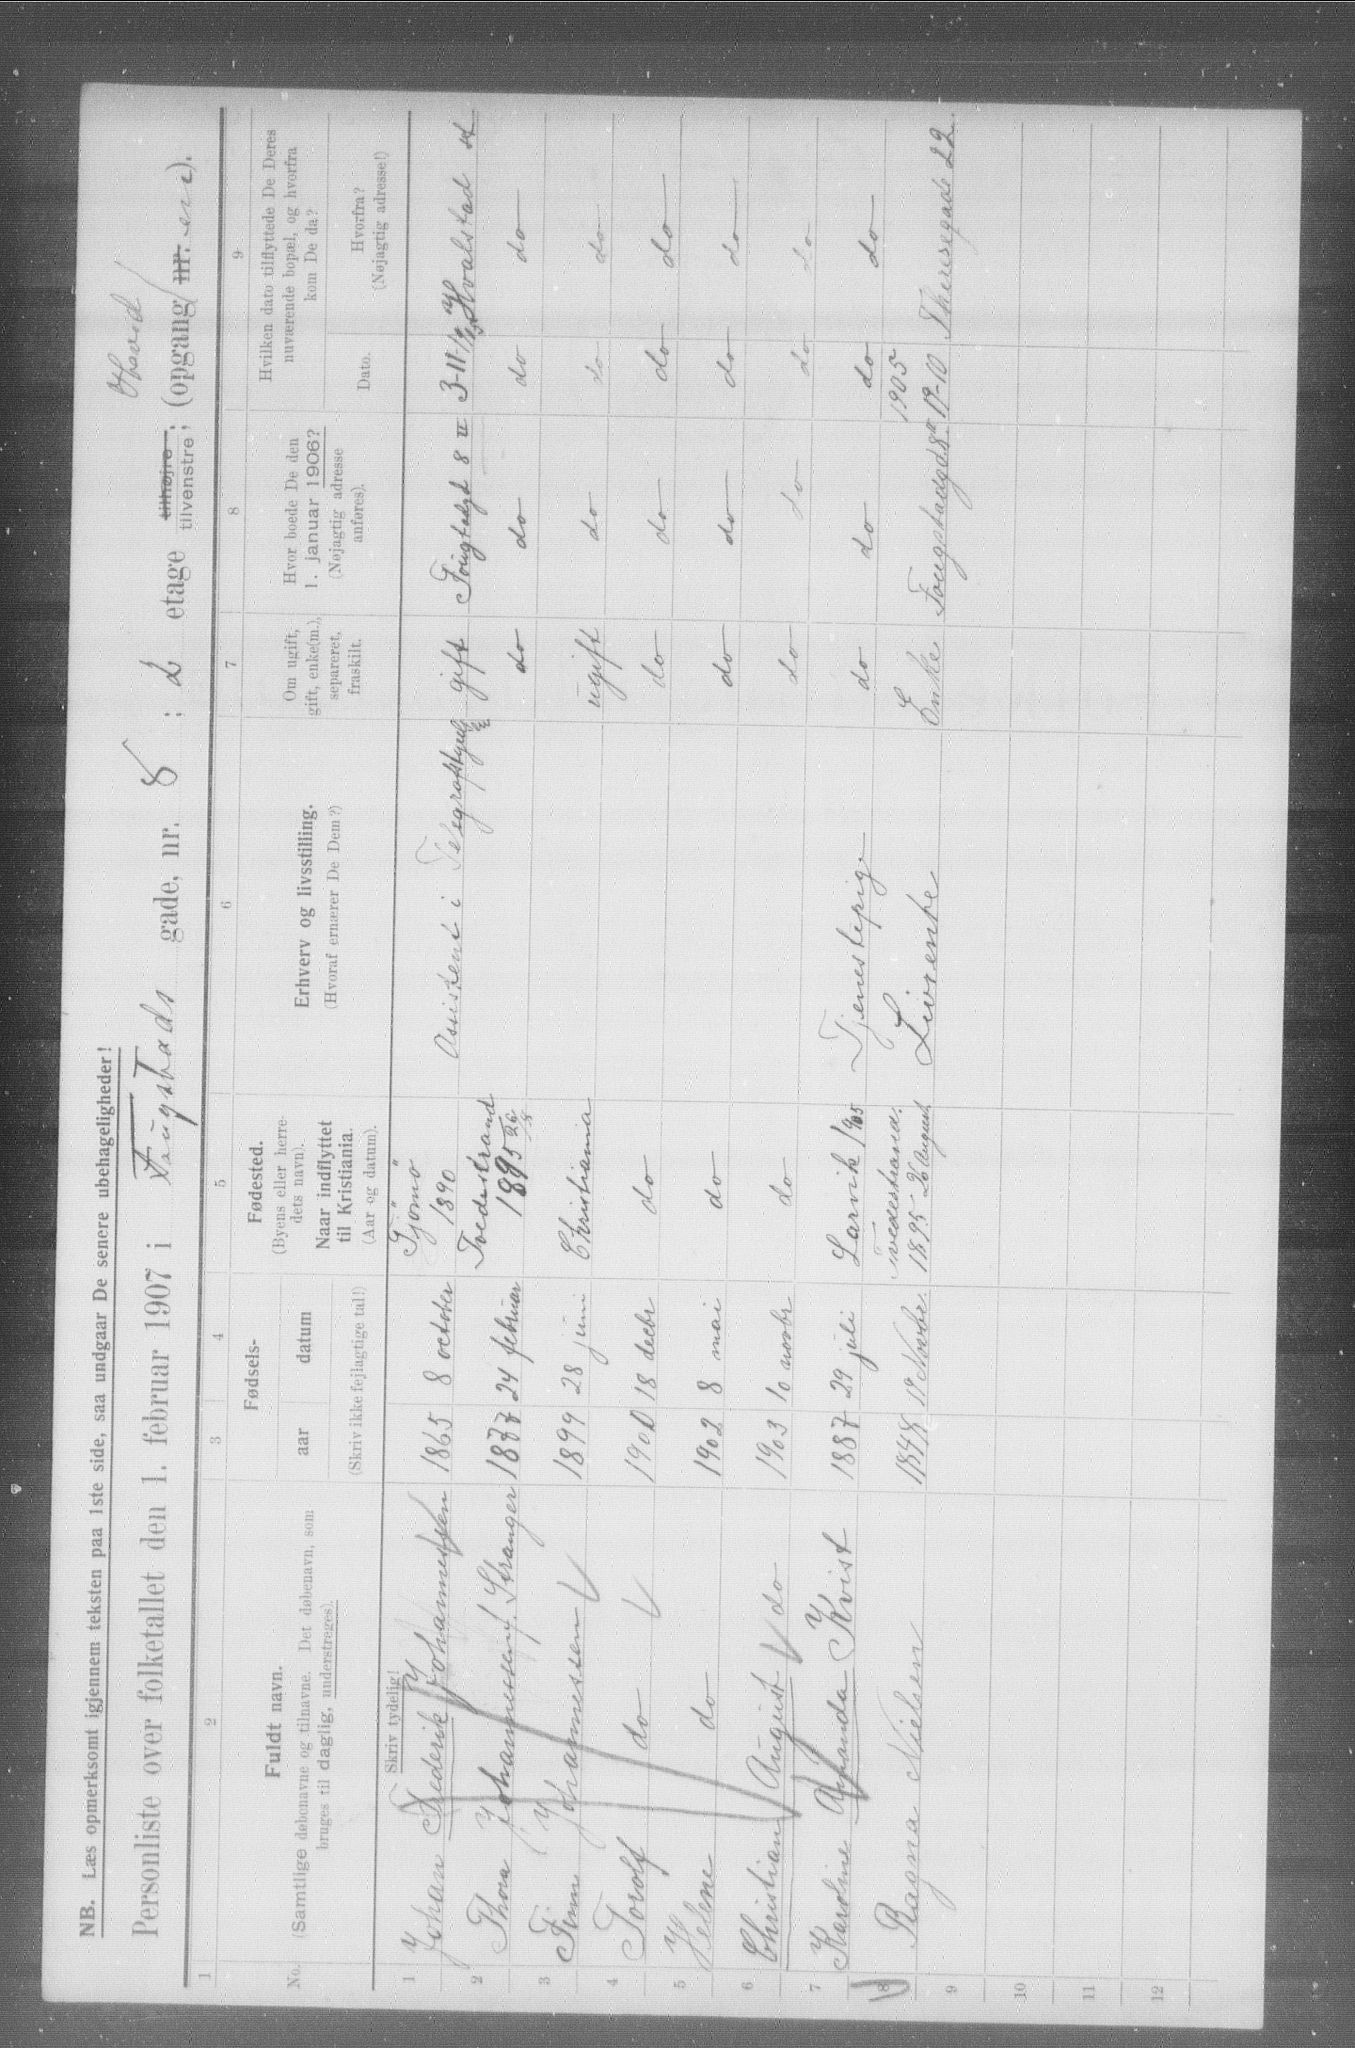 NB. Læs opmerksomt igjennem teksten paa 1ste side, saa undgaar De senere ubehageligheder!
Personliste over folketallet den 1. februar 1907 i Fougstads gade, nr. 8 ; 2 etage tilhøjre tilvenstre; (opgang nr. ene).
1 2 3 4 5 6 7 8 9
No.
Fuldt navn.
(Samtlige døbenavne og tilnavne. Det døbenavn, som
bruges til daglig, understreges).
Fødsels-
aar datum
(Skriv ikke fejlagtige tal!)
Fødested.
(Byens eller herre-
dets navn).
Naar indflyttet
til Kristiania.
(Aar og datum).
Erhverv og livsstilling.
(Hvoraf ernærer De Dem?)
Om ugift,
gift, enke(m.),
separeret,
fraskilt.
Hvor boede De den
1. januar 1906?
(Nøjagtig adresse
anføres).
Hvilken dato tilflyttede De Deres
nuværende bopæl, og hvorfra
kom De da?
Dato.
Hvorfra?
(Nøjagtig adresse!)
Skriv tydelig!
1 Johan Frederik Johannessen 1865 8 october Tjömö 1890 Assistent i gift 8 II 3-11- Hvalstad st
2 Thora Johannessen f. Stranger 1877 24 februar Tvedestrand 1895 26/8 do do do do
3 Finn Johannessen 1899 28 juni Christiania ugift do do do
4 Torolf do 1900 18 decbr do do do do do
5 Helene do 1902 8 mai do do do do do
6 Christian August do 1903 10 novbr do do do do do
7 Karoline Amanda Kvist 1887 29 juli Larvik Tjenestepige do do do do
8 Ragna Nielsen 1848 18 Novbr. Tvedestrand. 1895 26 August Livrente Enke Fougstadgd 8 1905 19-10 Theresegade 22.
9
10
11
12